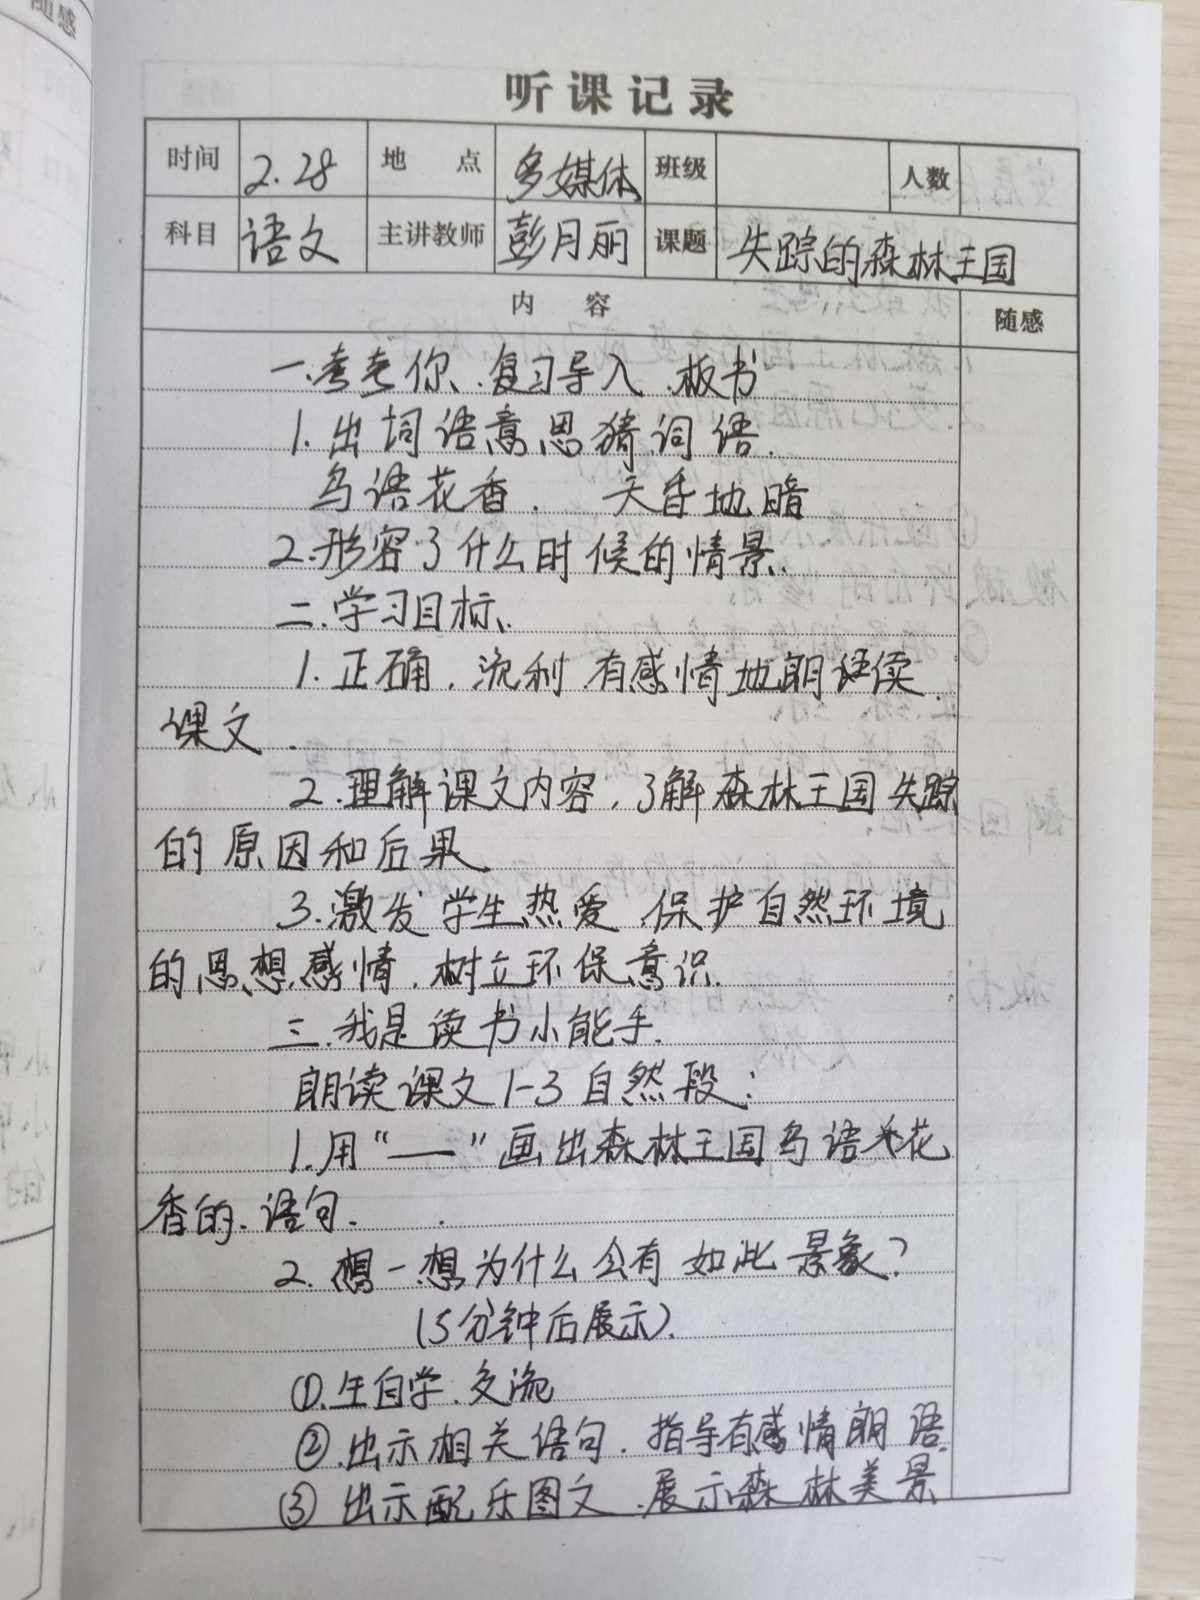 随感
听课记录
时间 2.28 地点 多媒体 班级 人数
科目 语文 主讲教师 彭月丽 课题 失踪的森林王国
内容 随感
一.考考你、复习导入.板书
1.出词语意思猜词语.
鸟语花香. 天昏地暗
2.形容了什么时候的情景.
二.学习目标.
1.正确.流利.有感情地朗读
课文.
2.理解课文内容,了解森林王国失踪
的原因和后果
3.激发学生热爱.保护自然环境
的思想感情.树立环保意识.
三.我是读书小能手.
朗读课文1-3自然段:
1.用“——”画出森林王国鸟语花
香的.语句.
2.想一想为什么会有如此景象?
(5分钟后展示).
①.生自学.交流
②.出示相关语句.指导有感情朗语.
③出示配乐图文.展示森林美景